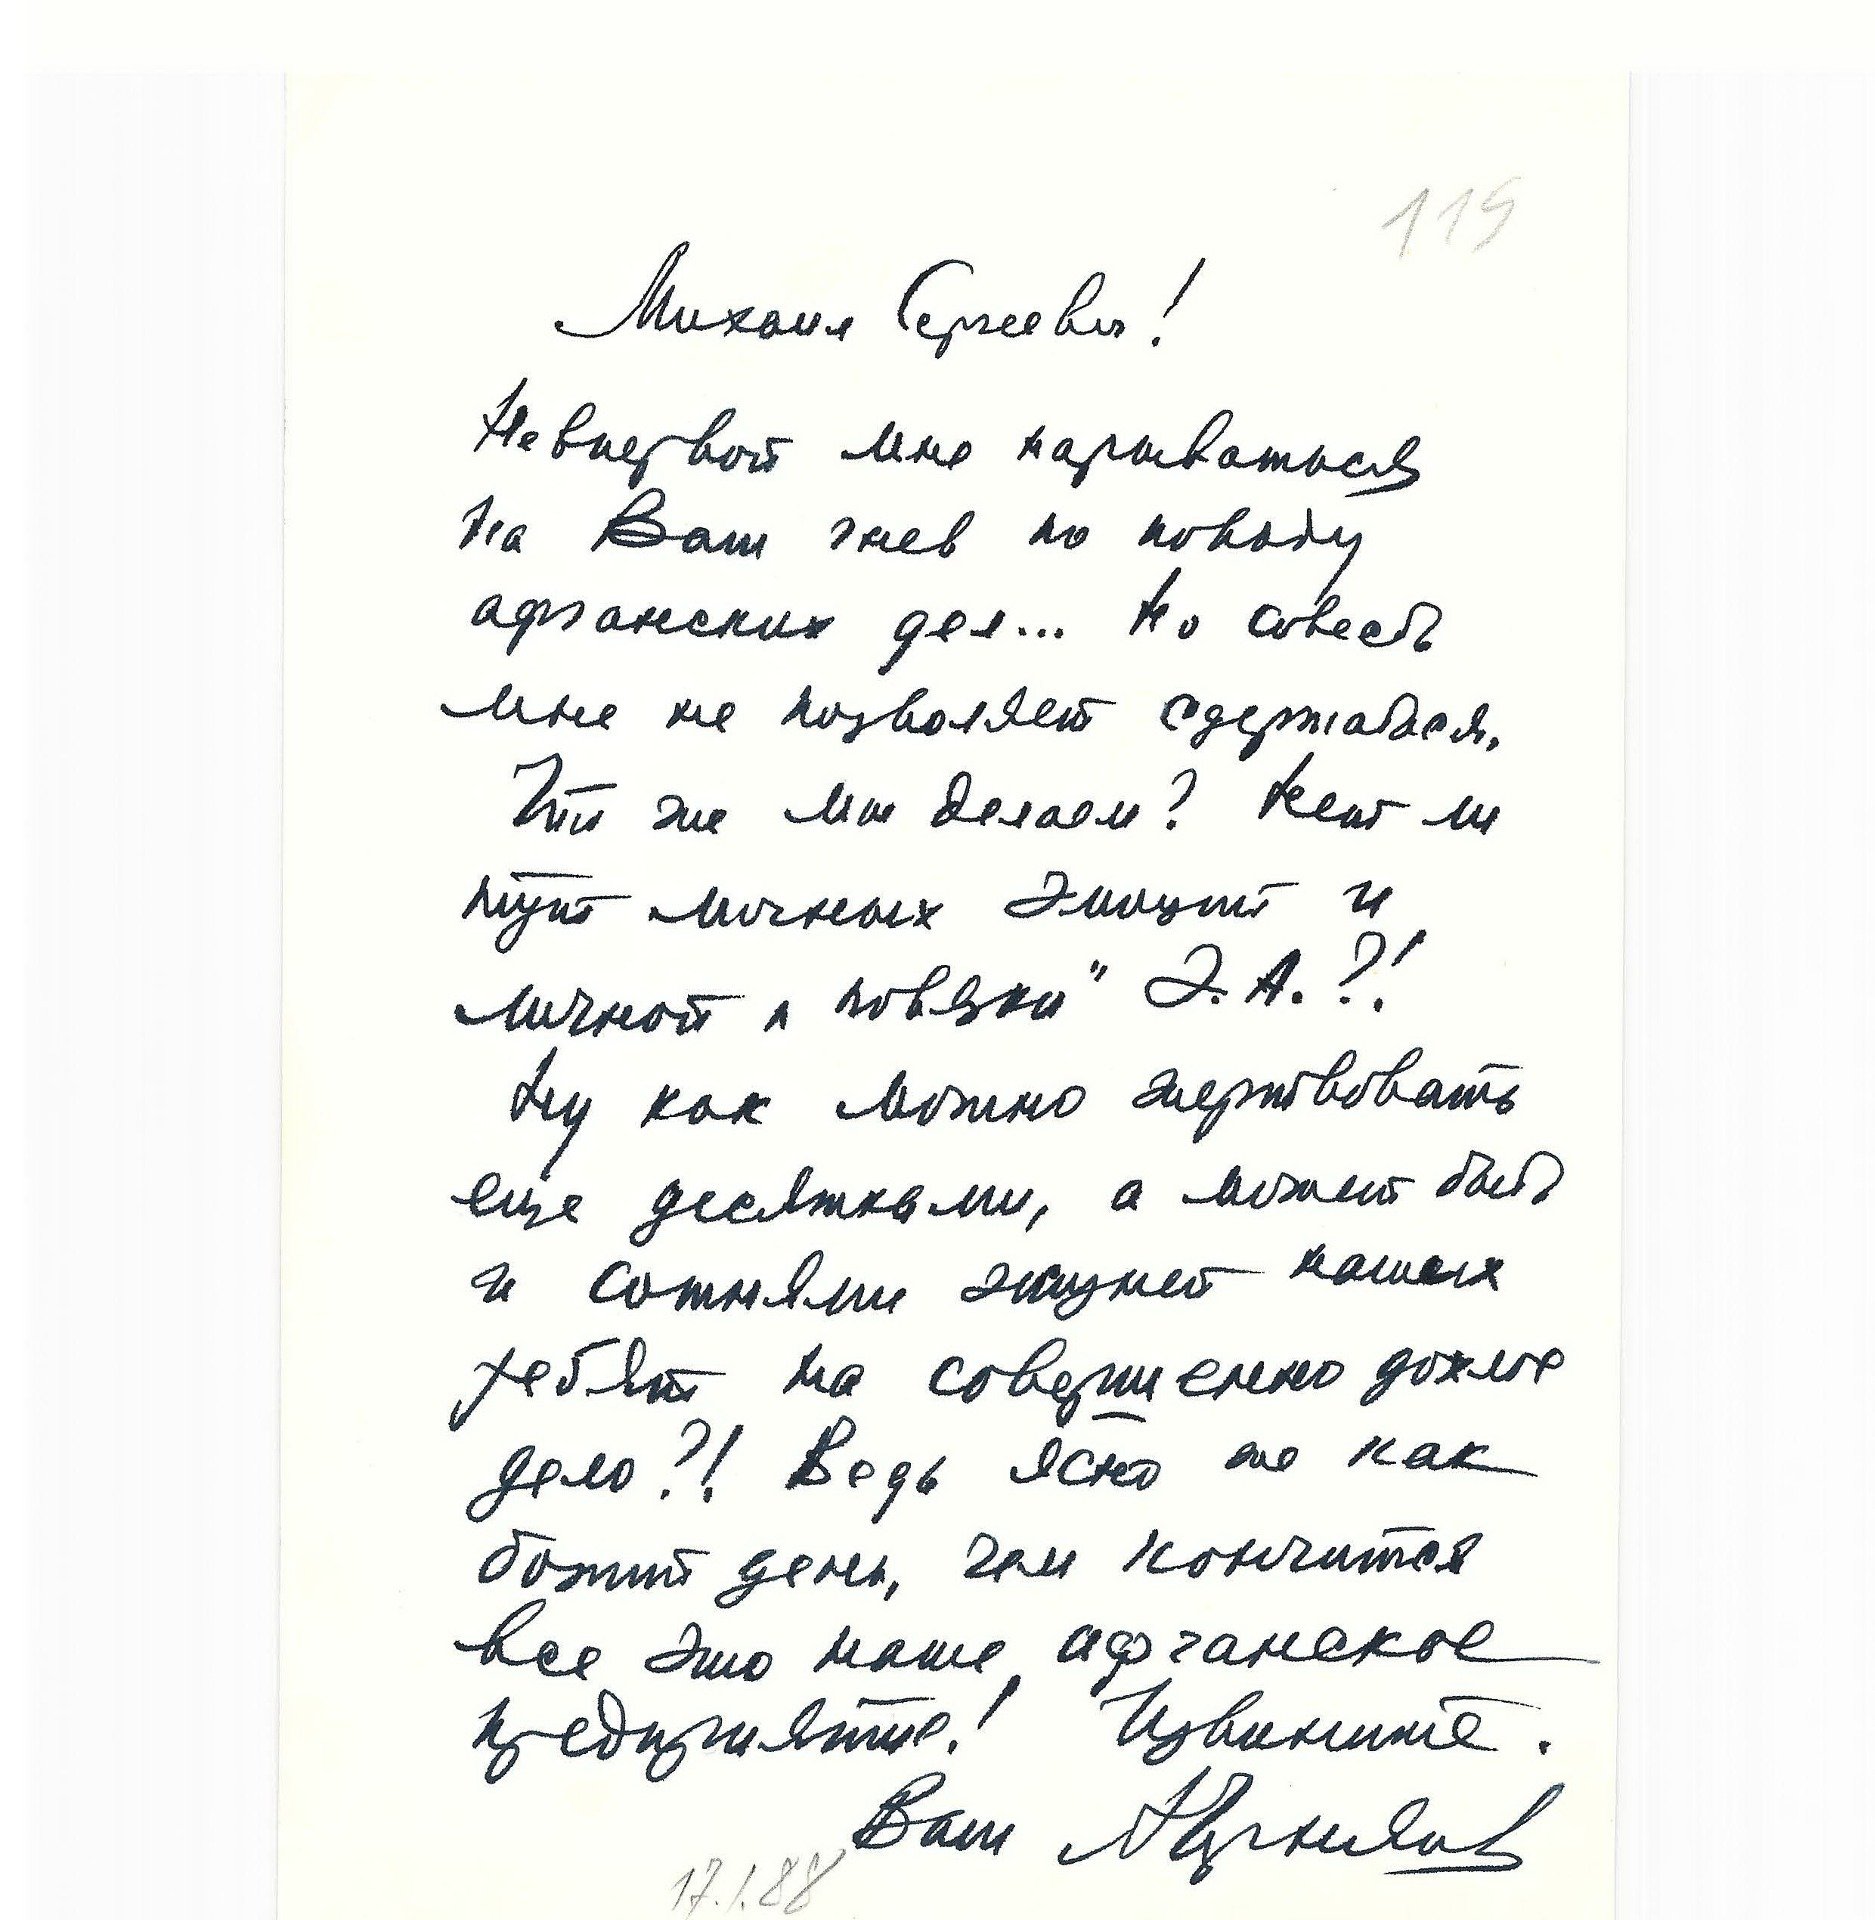 119
Михаил Сергеевич!
Невпервой мне нарываться
на Ваш гнев по поводу
афганских дел... Но совесть
мне не позволяет сдержаться.
Что же мы делаем? Нет ли
тут личных эмоций и
личной „повязки" Э.А.?!
Ну как можно жертвовать
еще десятками, а может быть
и сотнями жизней наших
ребят на совершенно дохлое
дело?! Ведь ясно же как
божий день, чем кончится
все это наше, афганское
предприятие! Извините.
Ваш А Черняев
17.1.88